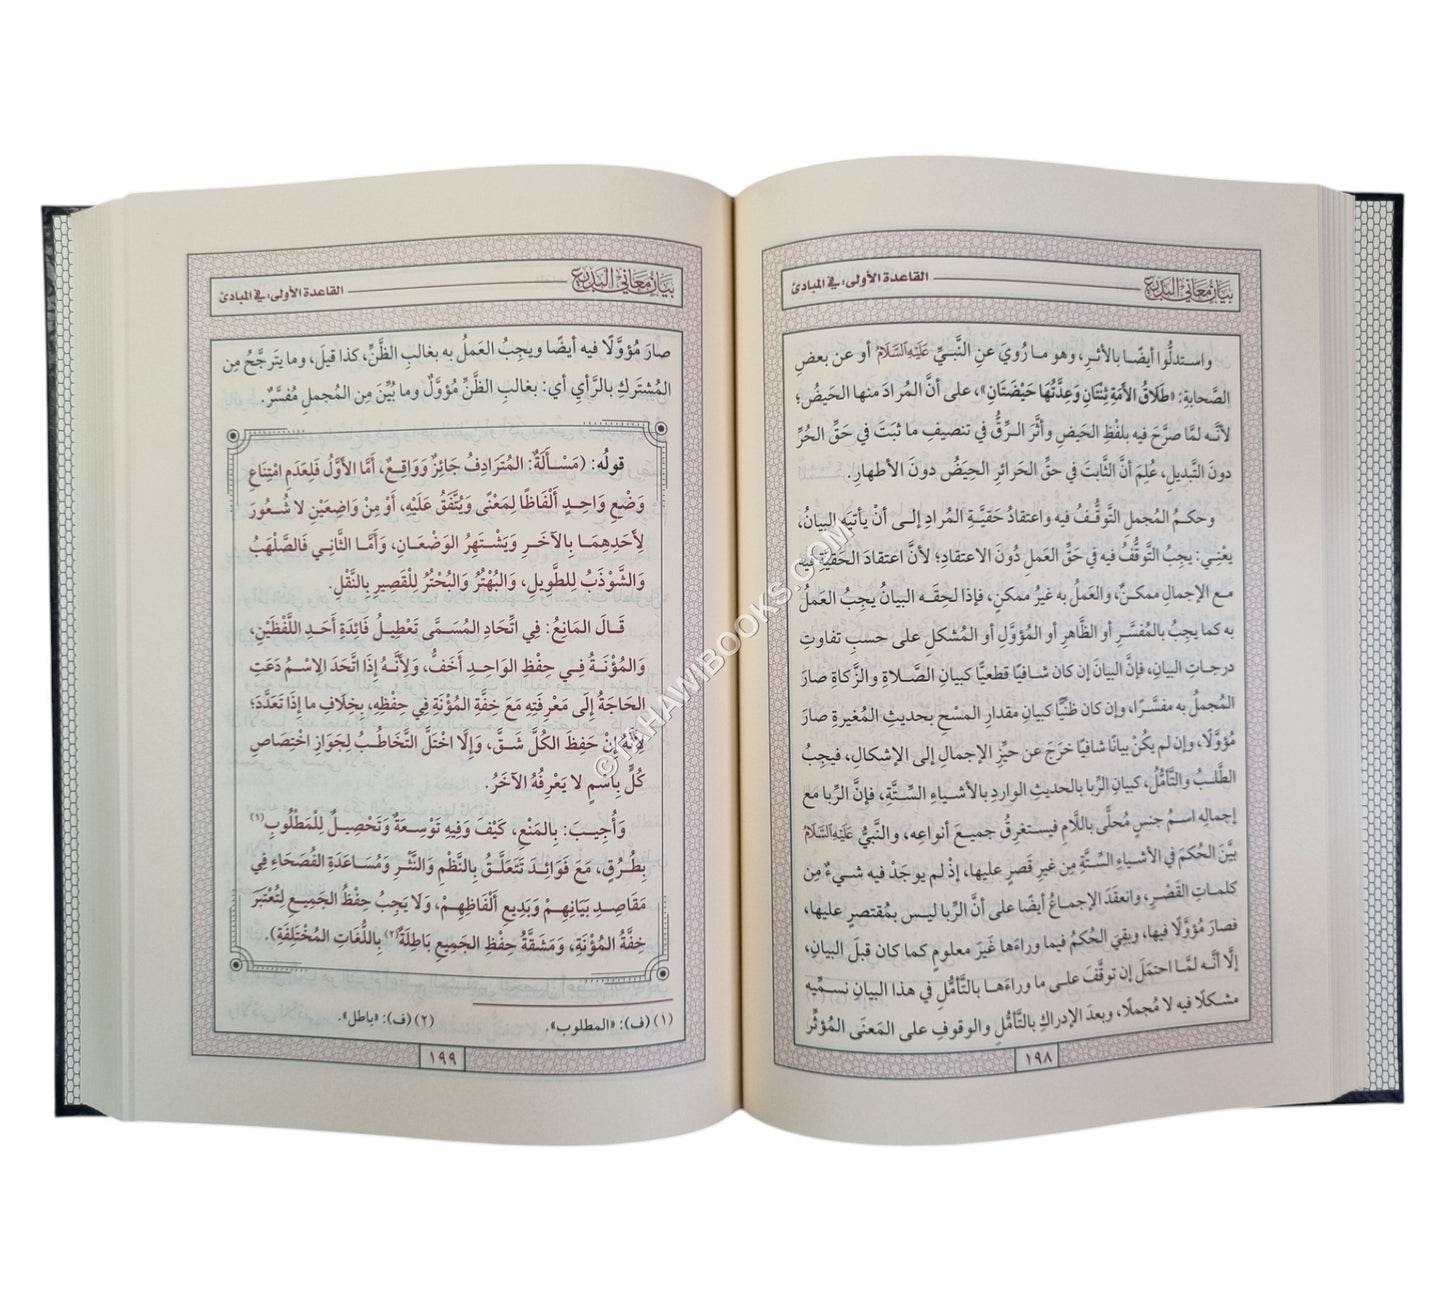 بيان معاني البديع
القاعدة الأولى: في المبادئ
واستدلُّوا أيضًا بالأثرِ، وهو ما رُويَ عنِ النَّبيِّ عَلَيْهِ السَّلَامُ أو عن بعضِ
الصَّحابةِ: «طَلَاقُ الأَمَةِ ثِنْتَانِ وَعِدَّتُهَا حَيْضَتَانِ»، على أنَّ المُرادَ منها الحَيضُ؛
لأنَّه لمَّا صرَّحَ فيه بلفظِ الحَيضِ وأثَّرَ الرِّقُّ في تنصيفِ ما ثبَتَ في حَقِّ الحُرِّ
دونَ التَّبديلِ، عُلِمَ أنَّ الثَّابتَ في حقِّ الحَرائرِ الحِيَضُ دونَ الأطهارِ.
وحكمُ المُجملِ التَّوقُّفُ فيه واعتقادُ حَقيَّةِ المُرادِ إلى أنْ يأتيَه البيانُ،
يعْنِي: يجِبُ التَّوقُّفُ فيه في حَقِّ العَملِ دُونَ الاعتقادِ؛ لأنَّ اعتقادَ الحَقيَّةِ فيه
مع الإجمالِ ممكنٌ، والعَملُ به غيرُ ممكنٍ، فإذا لحِقَه البيانُ يجِبُ العَملُ
به كما يجِبُ بالمُفسَّرِ أو الظَّاهرِ أو المُؤوَّلِ أو المُشكلِ على حسبِ تفاوتِ
درجاتِ البيانِ، فإنَّ البيانَ إن كان شافيًا قطعيًّا كبيانِ الصَّلاةِ والزَّكاةِ صارَ
المُجملُ به مفسَّرًا، وإن كان ظنِّيًّا كبيانِ مقدارِ المسْحِ بحديثِ المُغيرةِ صارَ
مُؤوَّلًا، وإن لم يكُنْ بيانًا شافيًا خرَجَ عن حيِّزِ الإجمالِ إلى الإشكالِ، فيجِبُ
الطَّلبُ والتَّأمُّلُ، كبيانِ الرِّبا بالحديثِ الواردِ بالأشياءِ السِّتَّةِ، فإنَّ الرِّبا مَع
إجمالِه اسمُ جنسٍ مُحلَّى باللَّامِ فيستغرِقُ جميعَ أنواعِه، والنَّبيُّ عَلَيْهِ السَّلَامُ
بيَّنَ الحُكمَ في الأشياءِ السِّتَّةِ مِن غيرِ قَصرٍ عليها، إذْ لم يوجَدْ فيه شيءٌ مِن
كلماتِ القَصْرِ، وانعقَدَ الإجماعُ أيضًا على أنَّ الرِّبا ليس بمُقتصرٍ عليها،
فصارَ مُؤوَّلًا فيها، وبقِيَ الحُكمُ فيما وراءَها غَيرَ معلومٍ كما كان قبلَ البيانِ،
إلَّا أنَّه لمَّا احتمَلَ إن توقَّفَ على ما وراءَها بالتَّأمُّلِ في هذا البيانِ نسمِّيه
مشكلًا فيه لا مُجملًا، وبعدَ الإدراكِ بالتَّأمُّلِ والوقوفِ على المَعنَى المُؤثِّرِ
١٩٨
بيان معاني البديع
القاعدة الأولى: في المبادئ
صارَ مُؤوَّلًا فيه أيضًا ويجِبُ العَملُ به بغالبِ الظَّنِّ، كذا قيلَ، وما يتَرجَّحُ مِن
المُشتَركِ بالرَّأيِ أي: بغالبِ الظَّنِّ مُؤوَّلٌ وما بُيِّنَ مِن المُجملِ مُفسَّرٌ.
قولُه: (مَسْأَلَةٌ: المُتَرَادِفُ جَائِزٌ وَوَاقِعٌ، أَمَّا الأَوَّلُ فَلِعَدَمِ امْتِنَاعِ
وَضْعِ وَاحِدٍ أَلْفَاظًا لِمَعْنًى وَيُتَّفَقُ عَلَيْهِ، أَوْ مِنْ وَاضِعَيْنِ لا شُعُورَ
لِأَحَدِهِمَا بِالآخَرِ وَيَشْتَهِرُ الوَضْعَانِ، وَأَمَّا الثَّانِي فَالصَّلْهَبُ
وَالشَّوْذَبُ لِلطَّوِيلِ، وَالبُهْتُرُ وَالبُحْتُرُ لِلْقَصِيرِ بِالنَّقْلِ.
قَالَ المَانِعُ: فِي اتِّحَادِ المُسَمَّى تَعْطِيلُ فَائِدَةِ أَحَدِ اللَّفْظَيْنِ،
وَالمُؤْنَةُ فِي حِفْظِ الوَاحِدِ أَخَفُّ، وَلِأَنَّهُ إِذَا اتَّحَدَ الِاسْمُ دَعَتِ
الحَاجَةُ إِلَى مَعْرِفَتِهِ مَعَ خِفَّةِ المُؤْنَةِ فِي حِفْظِهِ، بِخِلَافِ مَا إِذَا تَعَدَّدَ؛
لِأَنَّهُ إِنْ حَفِظَ الكُلَّ شَقَّ، وَإِلَّا اخْتَلَّ التَّخَاطُبُ لِجَوَازِ اخْتِصَاصِ
كُلٍّ بِاسْمٍ لا يَعْرِفُهُ الآخَرُ.
وَأُجِيبَ: بِالمَنْعِ، كَيْفَ وَفِيهِ تَوْسِعَةٌ وَتَحْصِيلٌ لِلْمَطْلُوبِ(١)
بِطُرُقٍ، مَعَ فَوَائِدَ تَتَعَلَّقُ بِالنَّظْمِ وَالنَّثْرِ وَمُسَاعَدَةِ الفُصَحَاءِ فِي
مَقَاصِدِ بَيَانِهِمْ وَبَدِيعِ أَلْفَاظِهِمْ، وَلَا يَجِبُ حِفْظُ الجَمِيعِ لِتُعْتَبَرَ
خِفَّةُ المُؤْنَةِ، وَمَشَقَّةُ حِفْظِ الجَمِيعِ بَاطِلَةٌ(٢) بِاللُّغَاتِ المُخْتَلِفَةِ).
(١) (ف): «المطلوب». (٢) (ف): «باطل».
١٩٩